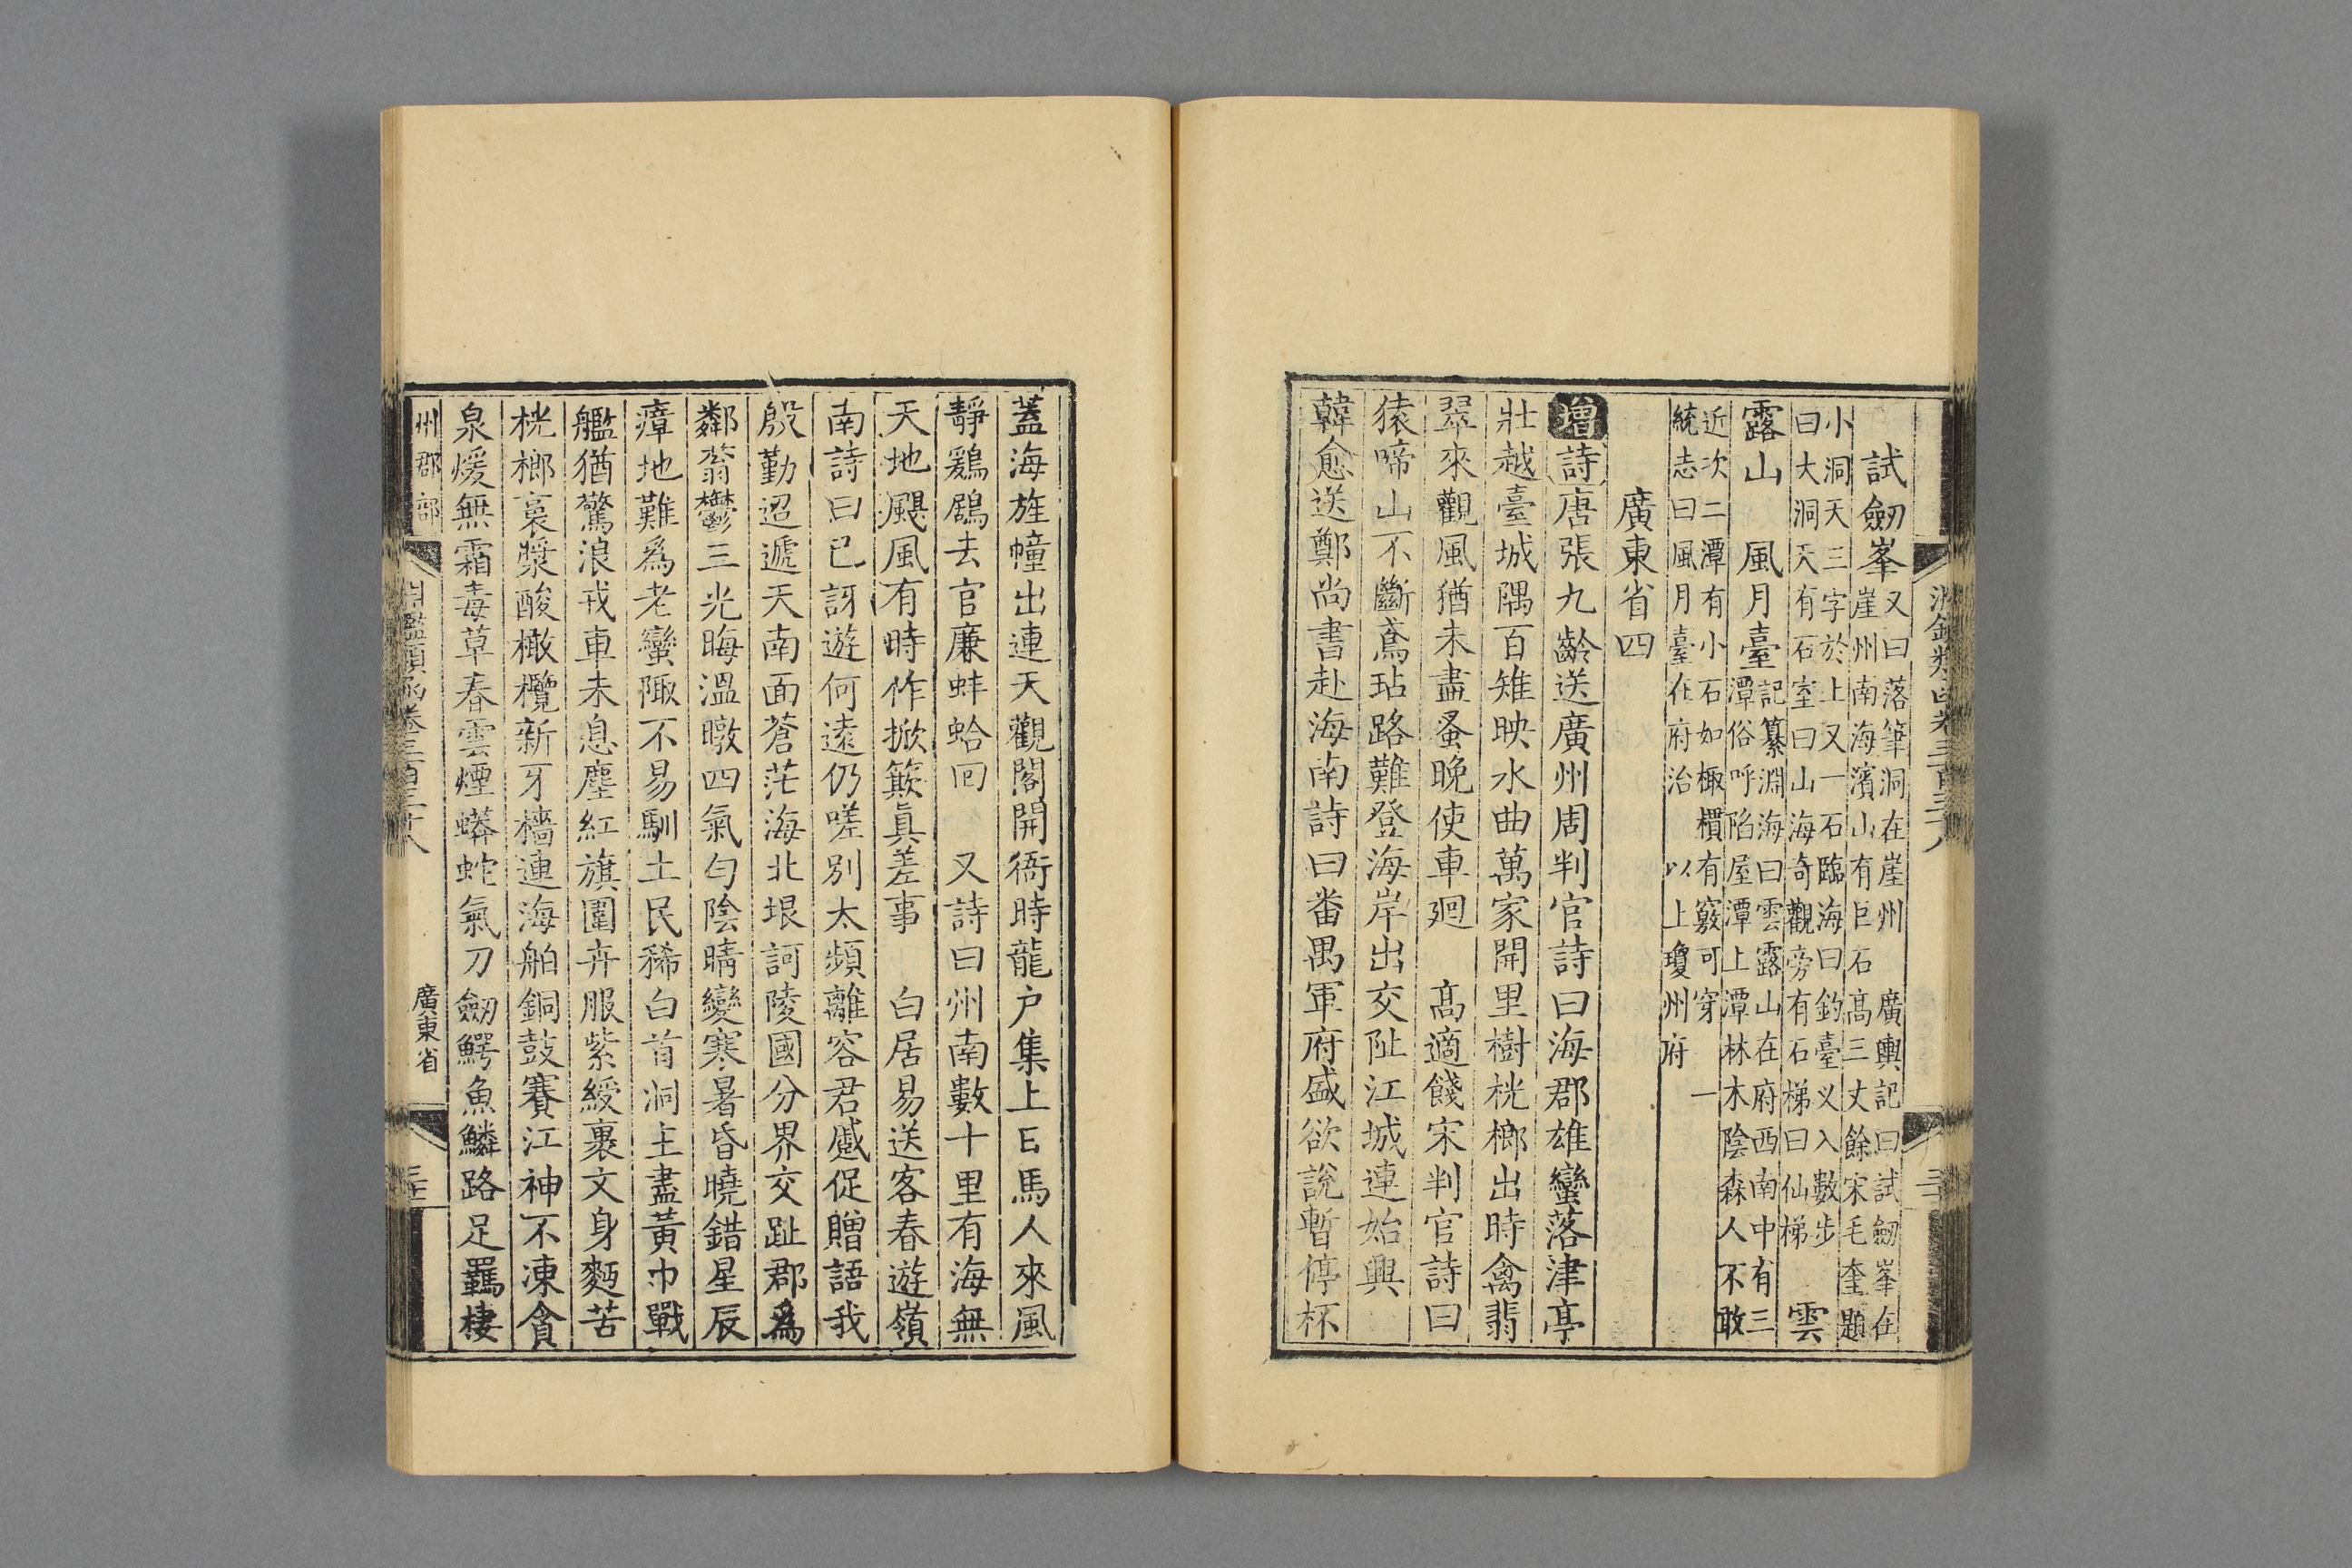 試劒峯又曰落筆洞在崖州 廣輿記曰試劒峯在
崖州南海濱山有巨石高三丈餘宋毛奎題
小洞天三字於上又一石臨海曰釣臺义入數步
曰大洞天有石室曰山海奇觀旁有石梯曰仙梯 雲
露山 風月臺記纂淵海曰雲露山在府西南中有三
潭俗呼陷屋潭上潭林木陰森人不敢
近次二潭有小石如有竅可穿 一
統志曰風月臺在府治 以上瓊州府
廣東省四
增詩唐張九齡送廣州周判官詩曰海郡雄蠻落津亭
壯越臺城隅百雉映水曲萬家開里樹桄榔出時禽翡
翠來觀風猶未盡蚤晚使車廻 高適餞宋判官詩曰
猿啼山不斷鳶跕路難登海岸出交阯江城連始興
韓愈送鄭尚書赴海南詩曰番禺軍府盛欲說暫停杯
蓋海旌幢出連天觀閣開衙時龍户集上日馬人來風
靜鶢鶋去官廉蚌蛤囘 又詩曰州南數十里有海無
天地颶風有時作掀簸眞差事 白居易送客春遊嶺
南詩曰已訝遊何遠仍嗟別太頻離容君蹙促贈語我
殷勤迢遞天南面蒼茫海北垠訶陵國分界交趾郡爲
鄰蓊鬱三光晦溫暾四氣勻陰晴變寒暑昏曉錯星辰
瘴地難爲老蠻陬不易馴土民稀白首洞主盡黃巾戰
艦猶驚浪戎車未息塵紅旗圍卉服紫綬裹文身麪苦
桄榔裛漿酸橄欖新牙檣連海舶銅鼓賽江神不凍貪
泉煖無霜毒草春雲煙蟒蛇氣刀劒鰐魚鱗路足羈棲
州郡部 淵鑑類函卷三百三十八 廣東省